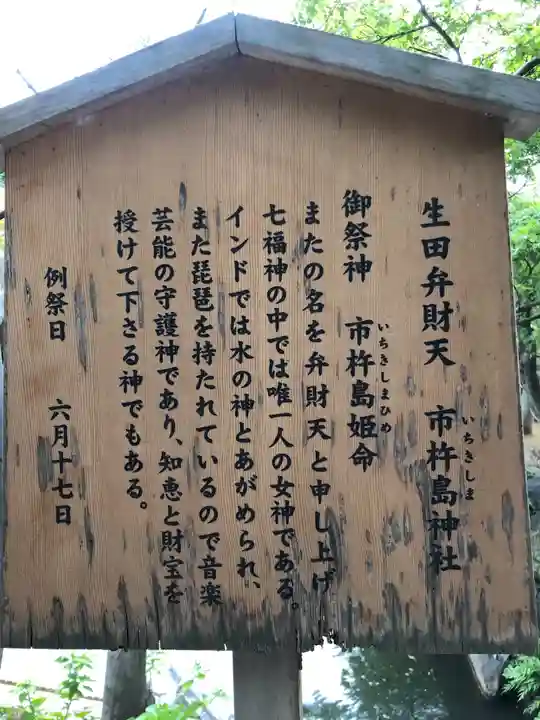 生田弁財天 市杵島神社
いちきしま
御祭神 市杵島姫命
いちきしまひめ
またの名を弁財天と申し上げ
七福神の中では唯一人の女神である。
インドでは水の神とあがめられ、
また琵琶を持たれているので音楽
芸能の守護神であり、知恵と財宝を
授けて下さる神でもある。
例祭日 六月十七日